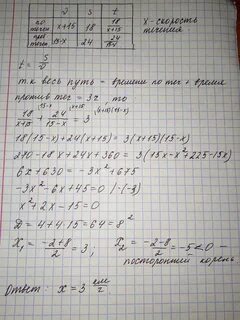 v s t
по течен x+15 18 18/x+15
прот течен 15-x 24 24/15-x
x - скорость течения
t = S/v
т.к. весь путь = времени по теч + время
против теч = 3ч, то
18/x+15 (15-x + 24/15-x (x+15 = 3 (x+15)(15-x)
18(15-x)+24(x+15) = 3(x+15)(15-x)
270-18x+24x+360 = 3(15x-x²+225-15x)
6x+630 = -3x²+675
-3x²-6x+45=0 /·(-3)
x²+2x-15=0
D = 4+4·15=64=8²
x₁ = -2+8/2 = 3; x₂ = -2-8/2 = -5<0 -
посторонний корень
Ответ: x = 3 км/ч